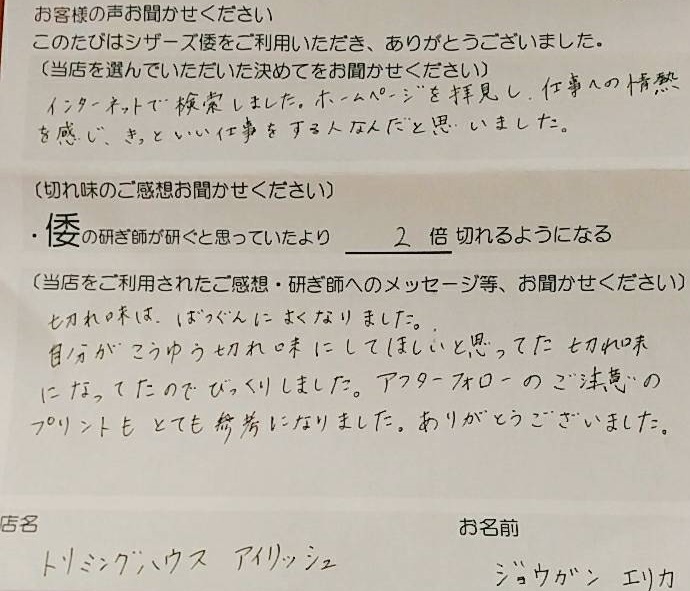 お客様の声お聞かせください
このたびはシザーズ倭をご利用いただき、ありがとうございました。
(当店を選んでいただいた決めてをお聞かせください)
インターネットで検索しました。ホームページを拝見し、仕事への情熱
を感じ、きっといい仕事をする人なんだと思いました。
(切れ味のご感想お聞かせください)
・倭の研ぎ師が研ぐと思っていたより 2 倍 切れるようになる
(当店をご利用されたご感想・研ぎ師へのメッセージ等、お聞かせください)
切れ味は、ばつぐんによくなりました。
自分がこうゆう切れ味にしてほしいと思ってた切れ味
になってたのでびっくりしました。アフターフォローのご注意の
プリントもとても参考になりました。ありがとうございました。
店名 お名前
トリミングハウス アイリッシュ ジョウガン エリカ